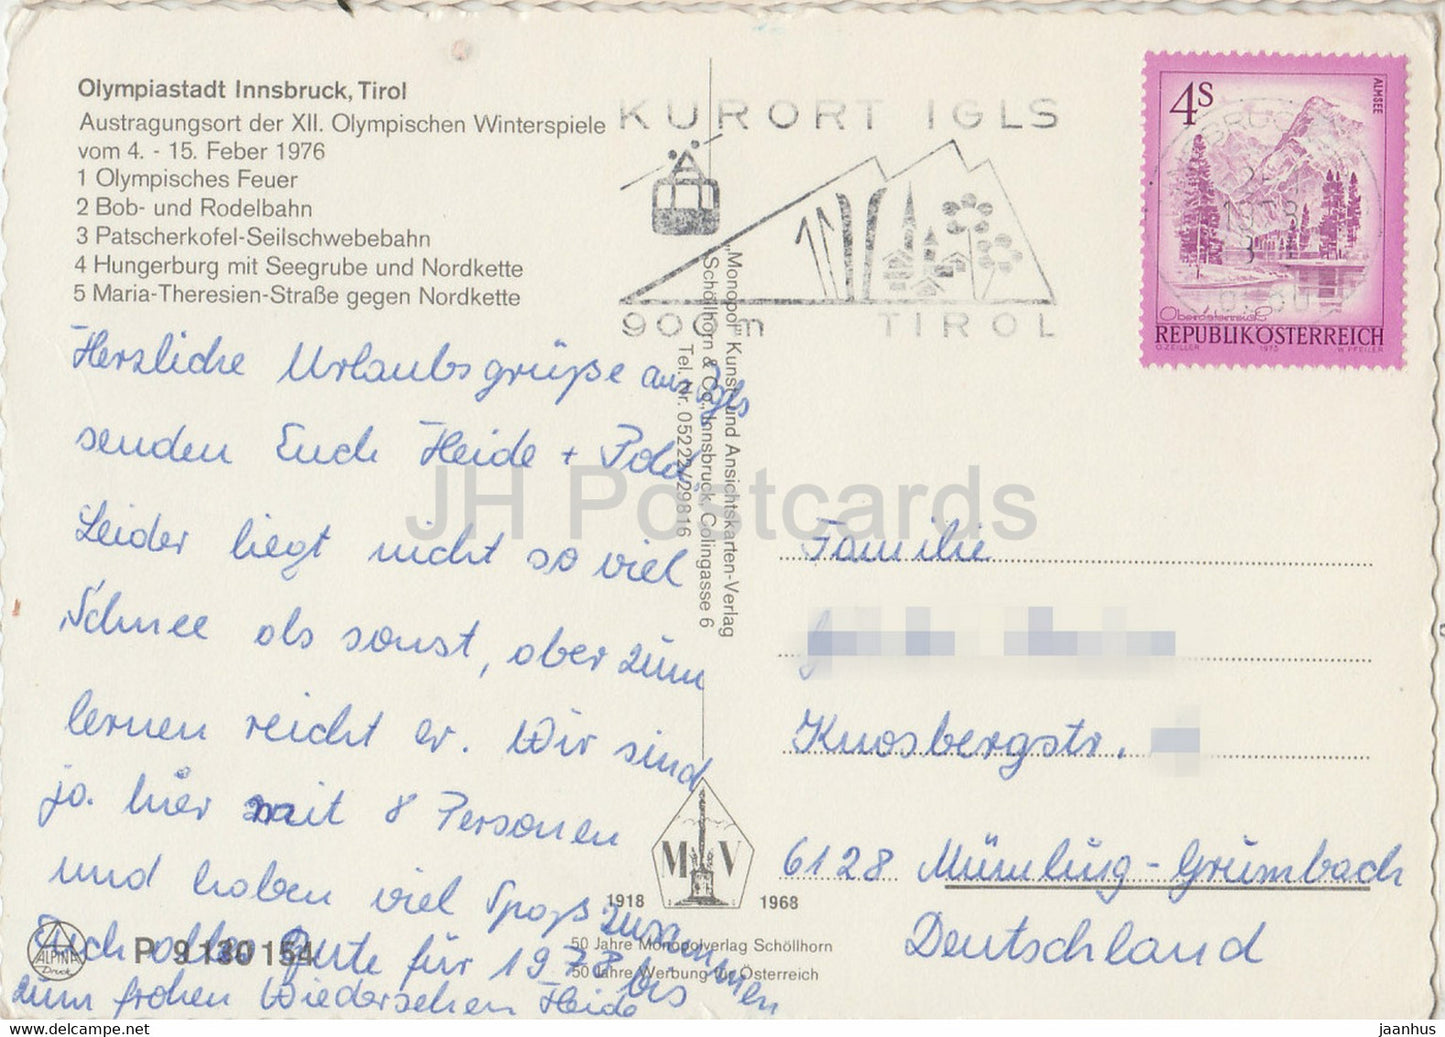 Olympiastadt Innsbruck, Tirol
Austragungsort der XII. Olympischen Winterspiele
vom 4. - 15. Feber 1976
1 Olympisches Feuer
2 Bob- und Rodelbahn
3 Patscherkofel-Seilschwebebahn
4 Hungerburg mit Seegrube und Nordkette
5 Maria-Theresien-Straße gegen Nordkette
KURORT IGLS
900m TIROL
4S
ALMSEE
Oberösterreich
REPUBLIK ÖSTERREICH
O.ZEILLER 1973 W.PFEILER
Herzliche Urlaubsgrüße aus Igls
senden Euch Heide + Pold.
Leider liegt nicht so viel
Schnee als sonst, aber zum
lernen reicht er. Wir sind
ja hier mit 8 Personen
und haben viel Spaß zusammen
Euch alles Gute für 1978 bis
zum frohen Wiedersehen Heide
„Monopol" Kunst- und Ansichtskarten-Verlag
Schöllhorn & Co., Innsbruck, Colingasse 6
Tel. Nr. 05222/29816
Familie
Knosbergstr.
6128 Mümling-Grumbach
Deutschland
M V
1918 1968
50 Jahre Monopolverlag Schöllhorn
50 Jahre Werbung für Österreich
ALPINA
Druck
P 9130 154
JH Postcards
www.delcampe.net
jaanhus